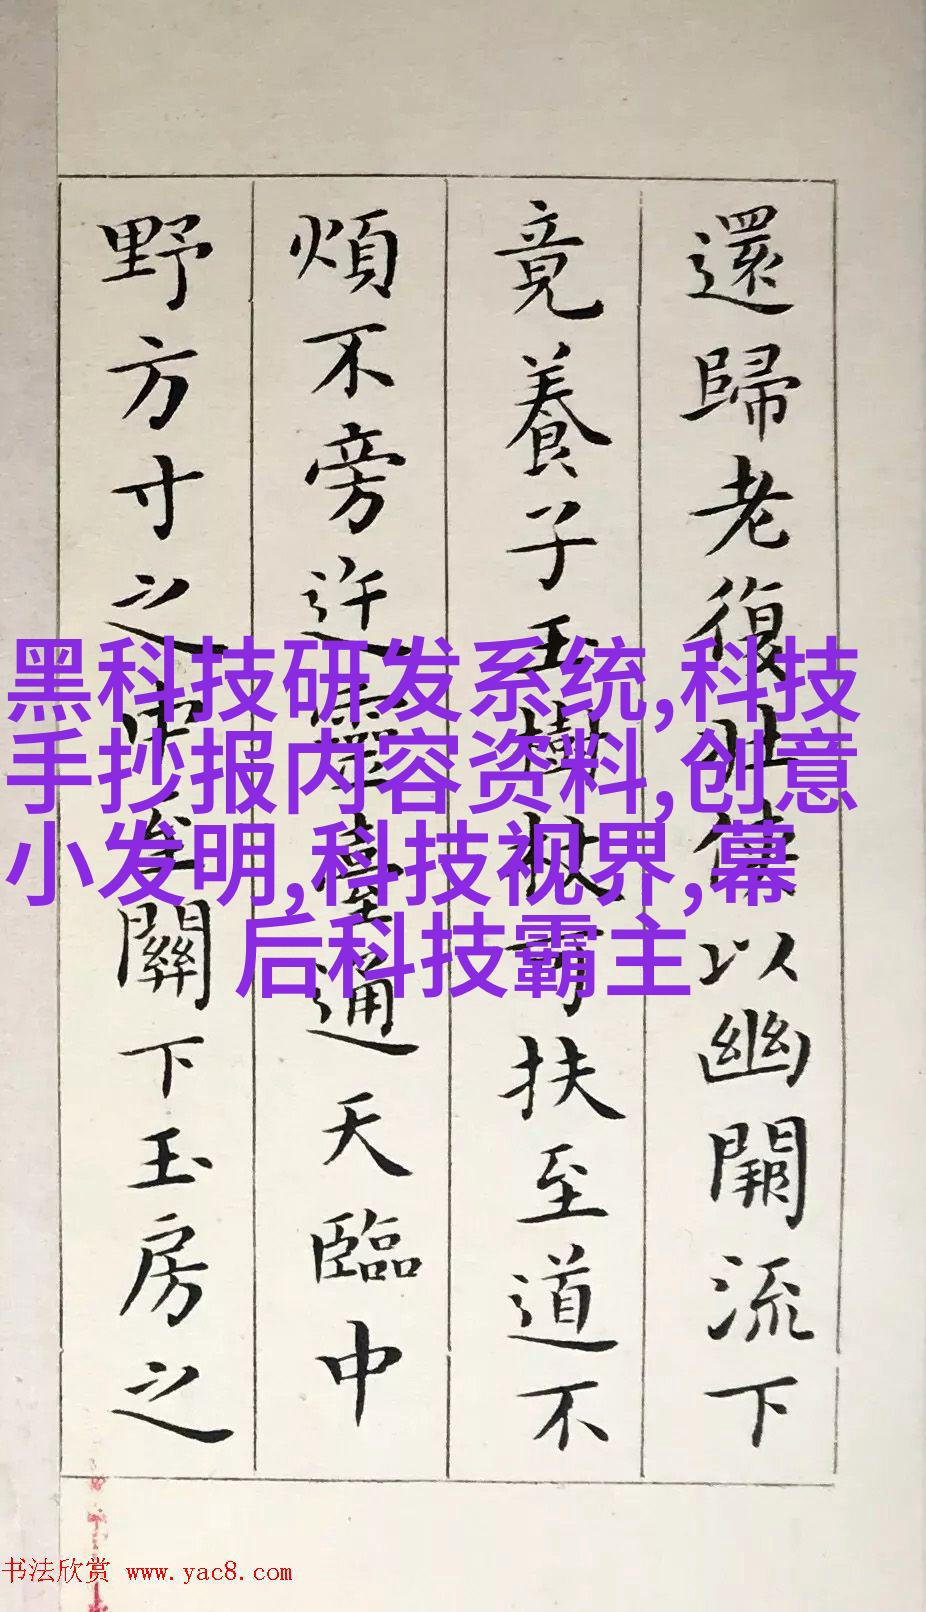 還歸老復壯侍以幽關流下
竟養子玉樹扶可扶至道不
煩不旁迕靈臺通天臨中
野方寸之中至關下玉房之
黑科技研发系统,科技
手抄报内容资料,创意
小发明,科技视界,幕
后科技霸主
书法欣赏 www.yac8.com